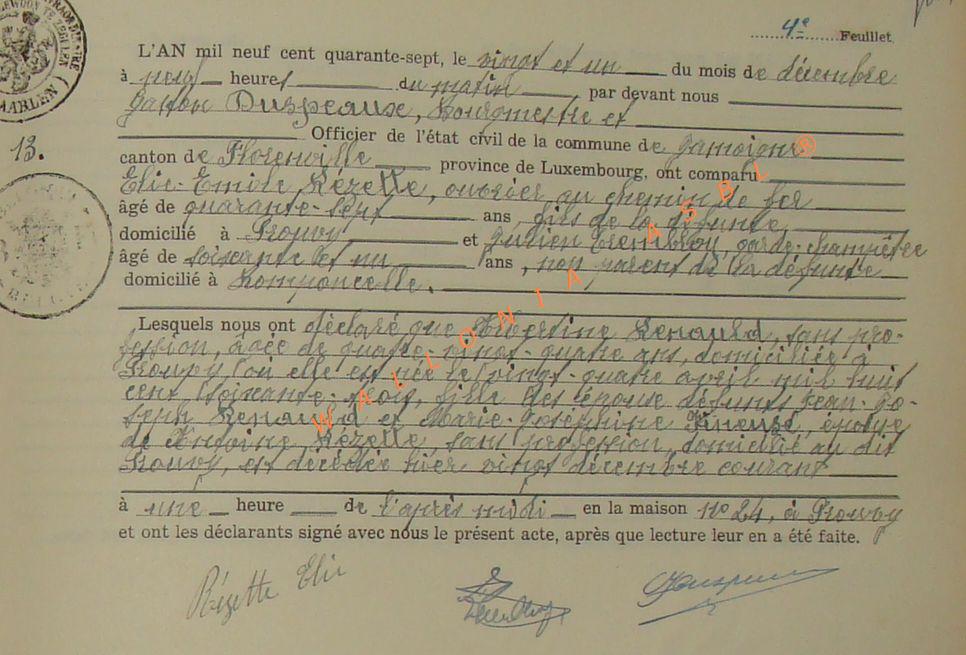 4e Feuillet.
L'AN mil neuf cent quarante-sept, le vingt et un du mois de décembre
à neuf heures du matin, par devant nous
Gaston Duspeaux, bourgmestre et
Officier de l'état civil de la commune de Jamoigne
13.
canton de Florenville province de Luxembourg, ont comparu
Elie-Emile Rézette, ouvrier au chemin de fer
âgé de quarante-sept ans, fils de la défunte,
domicilié à Prouvy, et Julien garde-champêtre
âgé de soixante et un ans, non parent de la défunte
domicilié à Romponcelle.
Lesquels nous ont déclaré que Albertine Renauld, sans pro-
fession, âgée de quatre-vingt-quatre ans, domiciliée à
Prouvy, où elle est née le vingt-quatre avril mil huit
cent soixante-trois, fille des épouse défunts Jean-Jo-
seph Renauld et Marie-Joséphine épouse
de Antoine Rézette, sans profession, domicilié au dit
Prouvy, est décédée hier vingt décembre courant
à une heure de l'après midi en la maison no 24, à Prouvy
et ont les déclarants signé avec nous le présent acte, après que lecture leur en a été faite.
Rézette Elie
WALLONIA ASBL ®